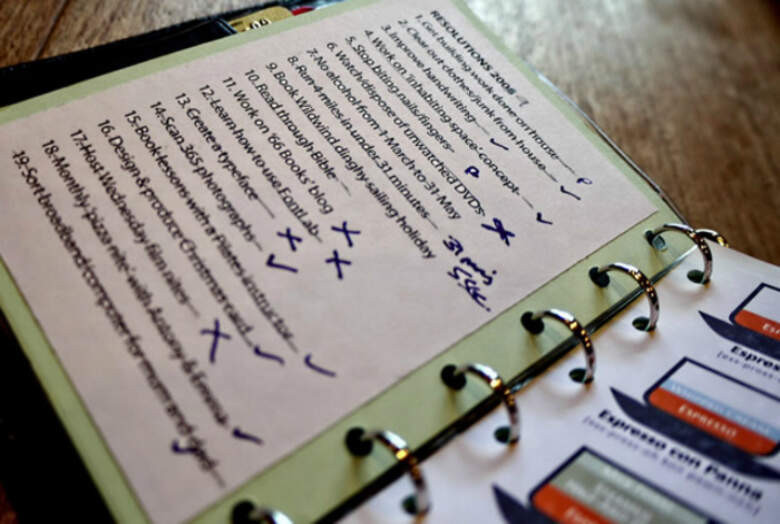 RESOLUTIONS 2008
1. Get building work done on house P
2. Clear out clothes/junk from house ✓
3. Improve handwriting ✓
4. Work on 'inhabiting space' concept ✓
5. Stop biting nails/fingers P
6. Watch/dispose of unwatched DVDs X
7. No alcohol from 1 March to 31 May
8. Run 4 miles in under 31 minutes 31 min, 5 sec.
9. Book Wildwind dinghy sailing holiday
10. Read through Bible
11. Work on '66 Books' blog X
12. Learn how to use FontLab X
13. Create a typeface X
14. Scan 365 photographs ✓
15. Book lessons with a Pilates instructor ✓
16. Design & produce Christmas card ✓
17. Host Wednesday film nites X
18. Monthly 'pizza nite' with Antony & Emma ✓
19. Sort broadband/computer for mom and dad ✓
Espresso
ESPRESSO
Espresso con Panna